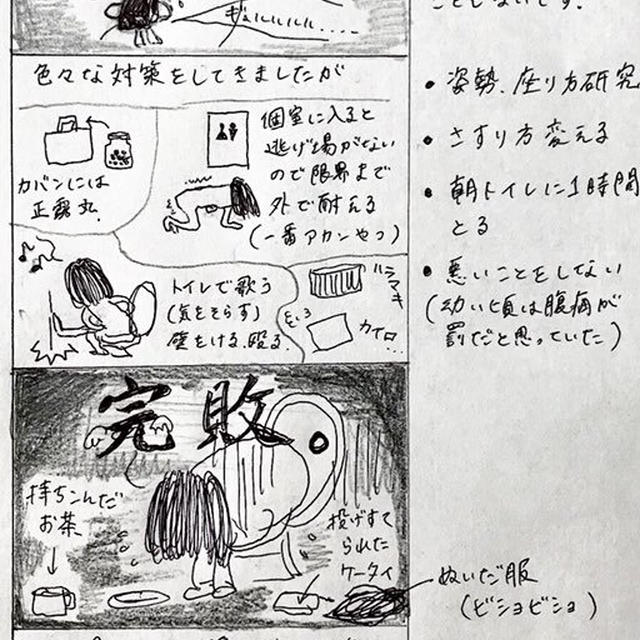 ギュルルルル.....
色々な対策をしてきましたが
カバンには
正露丸.
個室に入ると
逃げ場がない
ので限界まで
外で耐える
(一番アカンやつ)
トイレで歌う
(気をそらす)
壁をける、殴る.
ハラマキ
カイロ...
完敗
持ちこんだ
お茶
投げすて
られた
ケータイ
ぬいだ服
(ビショビショ)
ことしないです.
• 姿勢、座り方研究
• さすり方変える
• 朝トイレに1時間
とる
• 悪いことをしない
(幼い頃は腹痛が
罰だと思っていた)